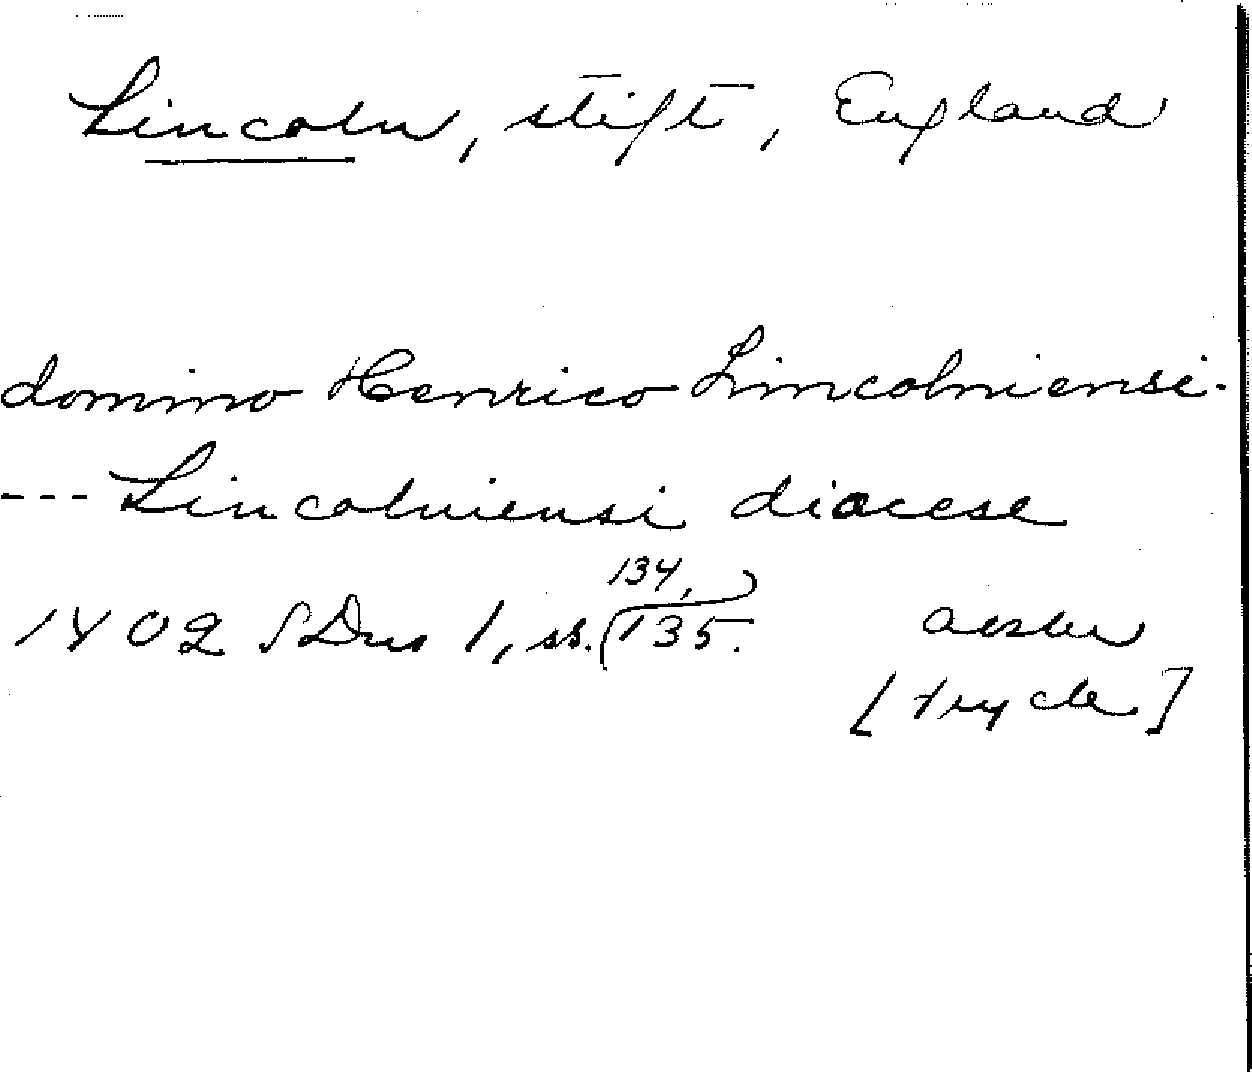 Lincoln, stift, England
domino Henrico Lincolniensi.
--- Lincolniensi diocese
134,
1402 SDns 1, ss. (135.) avskr
[tryck]